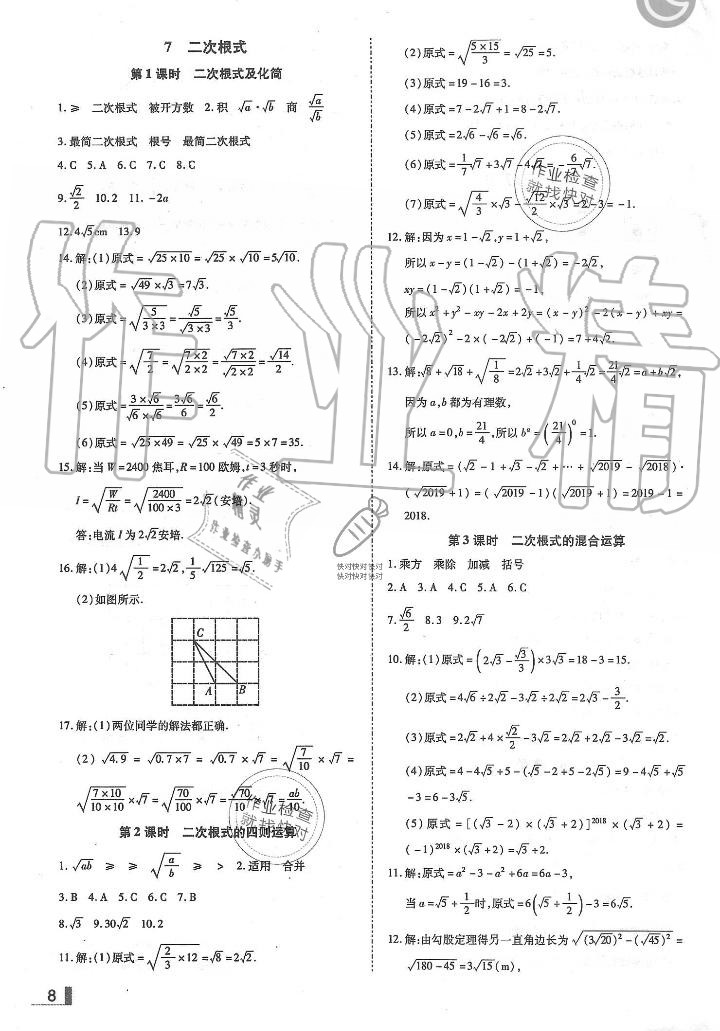 7 二次根式
第1课时 二次根式及化简
1.≥ 二次根式 被开方数 2.积 √a·√b 商 √a/√b
3.最简二次根式 根号 最简二次根式
4.C 5.A 6.C 7.C 8.C
9.√2/2 10.2 11.-2a
12.4√5cm 13.9
14.解:(1)原式=√(25×10)=√25×√10=5√10.
(2)原式=√49×√3=7√3.
(3)原式=√(5/(3×3))=√5/√(3×3)=√5/3.
(4)原式=√(7/2)=√((7×2)/(2×2))=√(7×2)/√(2×2)=√14/2.
(5)原式=(3×√6)/(√6×√6)=3√6/6=√6/2.
(6)原式=√(25×49)=√25×√49=5×7=35.
15.解:当W=2400焦耳,R=100欧姆,t=3秒时,
I=√(W/Rt)=√(2400/(100×3))=2√2(安培).
答:电流I为2√2安培.
16.解:(1)4√(1/2)=2√2,(1/5)√125=√5.
(2)如图所示.
C
A B
17.解:(1)两位同学的解法都正确.
(2)√4.9=√(0.7×7)=√0.7×√7=√(7/10)×√7=
√((7×10)/(10×10))×√7=√(70/100)×√7=√70/√100×√7=ab/10.
第2课时 二次根式的四则运算
1.√ab ≥ ≥ √(a/b) ≥ > 2.适用 合并
3.B 4.A 5.C 6.C 7.C
8.√3 9.30√2 10.2
11.解:(1)原式=√(2/3×12)=√8=2√2.
8
(2)原式=√((5×15)/3)=√25=5.
(3)原式=19-16=3.
(4)原式=7-2√7+1=8-2√7.
(5)原式=2√6-√6=√6.
(6)原式=(1/7)√7+3√7-4√7=-(6/7)√7.
(7)原式=√(4/3)×√3-√12/2×√3=2-3=-1.
12.解:因为x=1-√2,y=1+√2,
所以x-y=(1-√2)-(1+√2)=-2√2,
xy=(1-√2)(1+√2)=-1,
所以x²+y²-xy-2x+2y=(x-y)²-2(x-y)+xy=
(-2√2)²-2×(-2√2)+(-1)=7+4√2.
13.解:√8+√18+√(1/8)=2√2+3√2+(1/4)√2=(21/4)√2=a+b√2,
因为a,b都为有理数,
所以a=0,b=21/4,所以bᵃ=(21/4)⁰=1.
14.解:原式=(√2-1+√3-√2+…+√2019-√2018)·
(√2019+1)=(√2019-1)(√2019+1)=2019-1=
2018.
第3课时 二次根式的混合运算
1.乘方 乘除 加减 括号
2.A 3.A 4.C 5.A 6.C
7.√6/2 8.3 9.2√7
10.解:(1)原式=(2√3-√3/3)×3√3=18-3=15.
(2)原式=4√6÷2√2-3√2÷2√2=2√3-3/2.
(3)原式=2√2+4×√2/2-3√2=2√2+2√2-3√2=√2.
(4)原式=4-4√5+5-(√5-2+5-2√5)=9-4√5+√5
-3=6-3√5.
(5)原式=[(√3-2)×(√3+2)]²⁰¹⁸×(√3+2)=
(-1)²⁰¹⁸×(√3+2)=√3+2.
11.解:原式=a²-3-a²+6a=6a-3,
当a=√5+1/2时,原式=6(√5+1/2)-3=6√5.
12.解:由勾股定理得另一直角边长为√((3√20)²-(√45)²)=
√(180-45)=3√15(m),
作业精
作业检查
就找快对
作业精灵
作业检查小助手
快对快对快对
快对快对快对
作业检查
就找快对